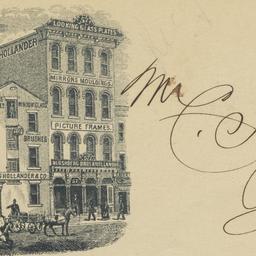 LOOKING GLASS PLATES
HOLLANDER
MIRRORS MOULDINGS
WINDOW GLASS
PICTURE FRAMES
BRUSHES
HOLLANDER & CO.
Mr C.